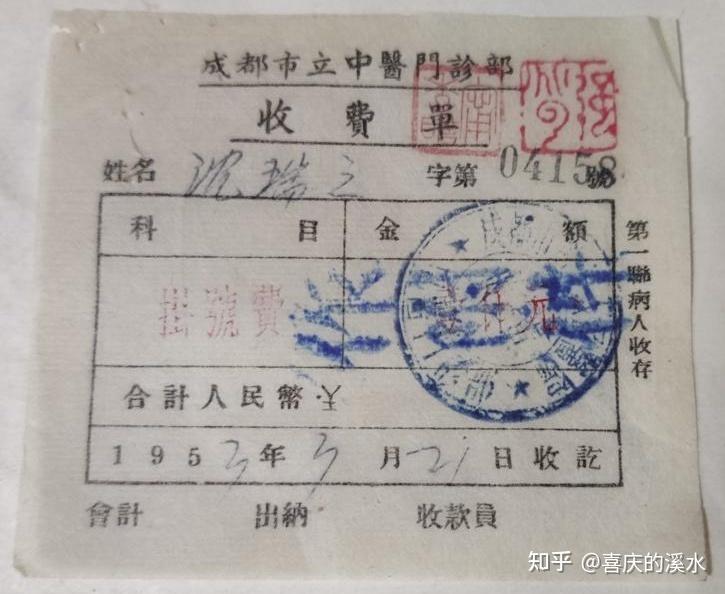 成都市立中醫門診部
收費單
姓名 沈瑞之 字第 04158 號
科目 金額
掛號費 壹仟元
合計人民幣
1953年3月21日收訖
會計 出納 收款員
第一聯病人收存
知乎 @喜庆的溪水